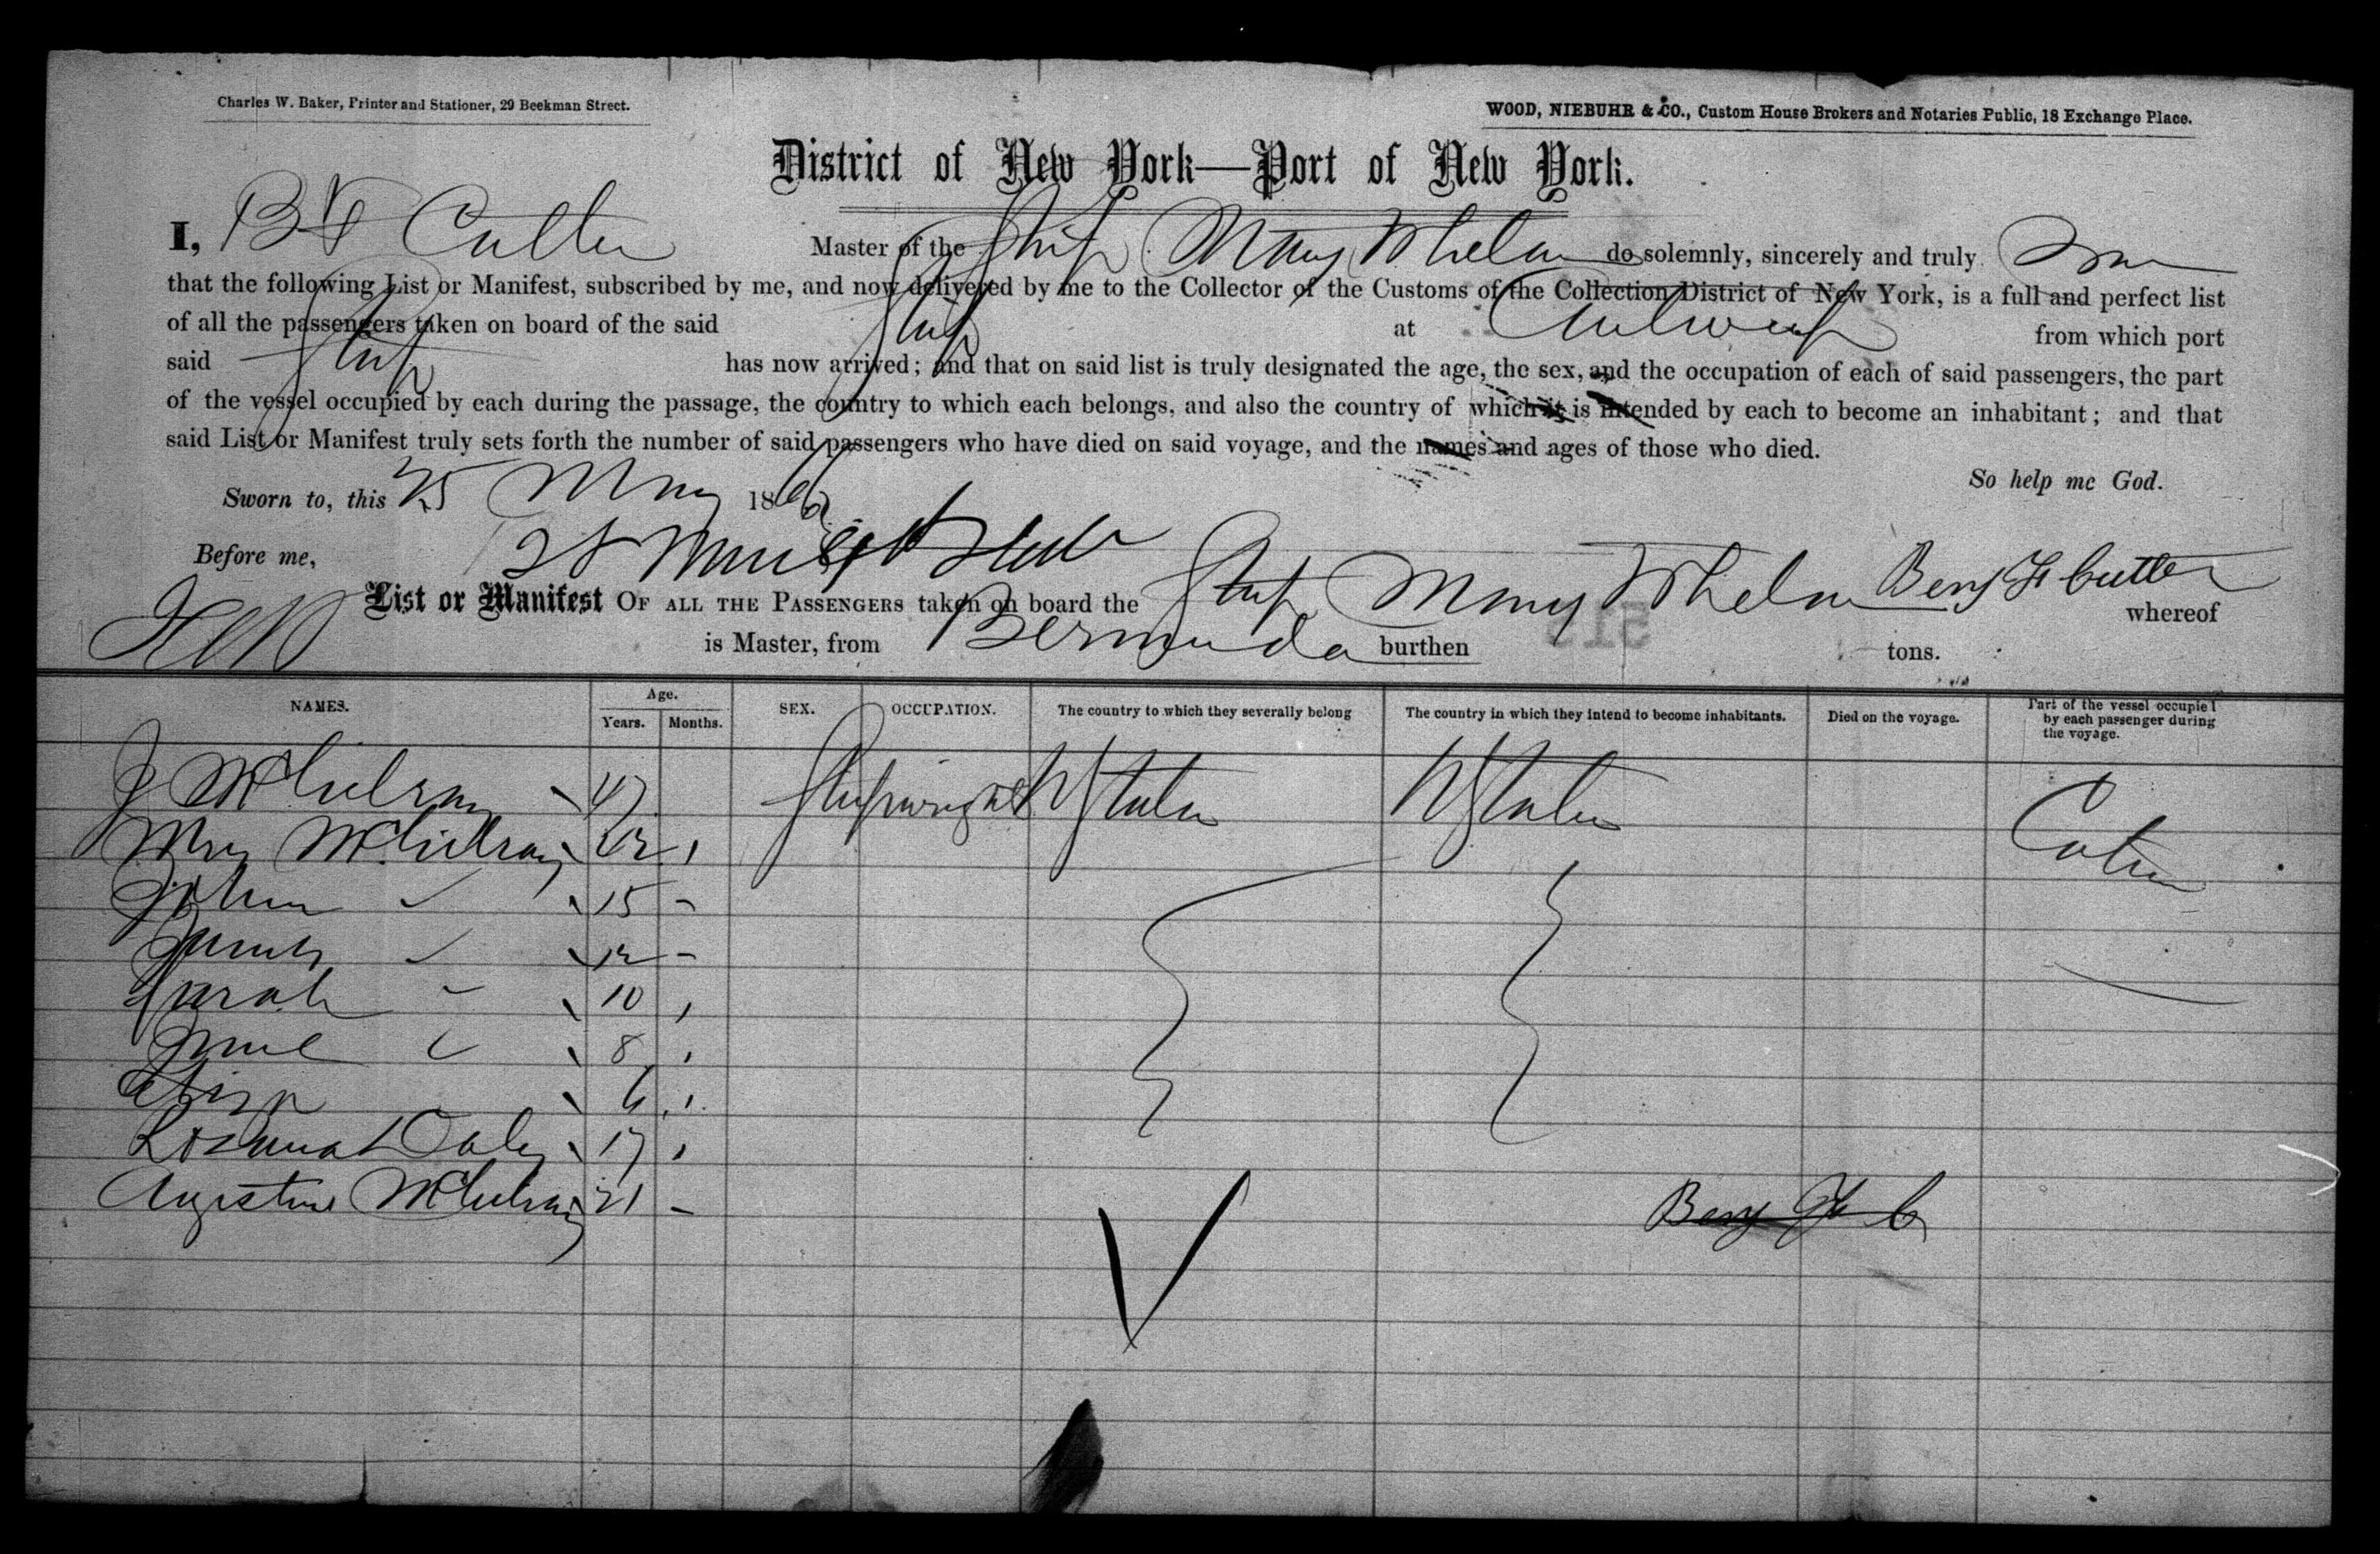 Charles W. Baker, Printer and Stationer, 29 Beekman Street.
WOOD, NIEBUHR & CO., Custom House Brokers and Notaries Public, 18 Exchange Place.
District of New York—Port of New York.
I, B F Cutter Master of the Ship Mary Whelan do solemnly, sincerely and truly
that the following List or Manifest, subscribed by me, and now delivered by me to the Collector of the Customs of the Collection District of New York, is a full and perfect list
of all the passengers taken on board of the said Ship at Antwerp from which port
said Ship has now arrived; and that on said list is truly designated the age, the sex, and the occupation of each of said passengers, the part
of the vessel occupied by each during the passage, the country to which each belongs, and also the country of which it is intended by each to become an inhabitant; and that
said List or Manifest truly sets forth the number of said passengers who have died on said voyage, and the names and ages of those who died.
So help me God.
Sworn to, this 25 May 186
Before me,
List or Manifest OF ALL THE PASSENGERS taken on board the Ship Mary Whelan Benj F Cutter whereof
is Master, from Bermuda burthen tons.
NAMES. Age. Years. Months. SEX. OCCUPATION. The country to which they severally belong The country in which they intend to become inhabitants. Died on the voyage. Part of the vessel occupied by each passenger during the voyage.
J 47 Shipwright U States U States Cabin
Mrs 42 "
John " 15 -
James " 12 -
Sarah " 10 "
Jane " 8 "
Eliza 6 "
Rosanna Daley 17 "
Augustine 21 -
Benj F C